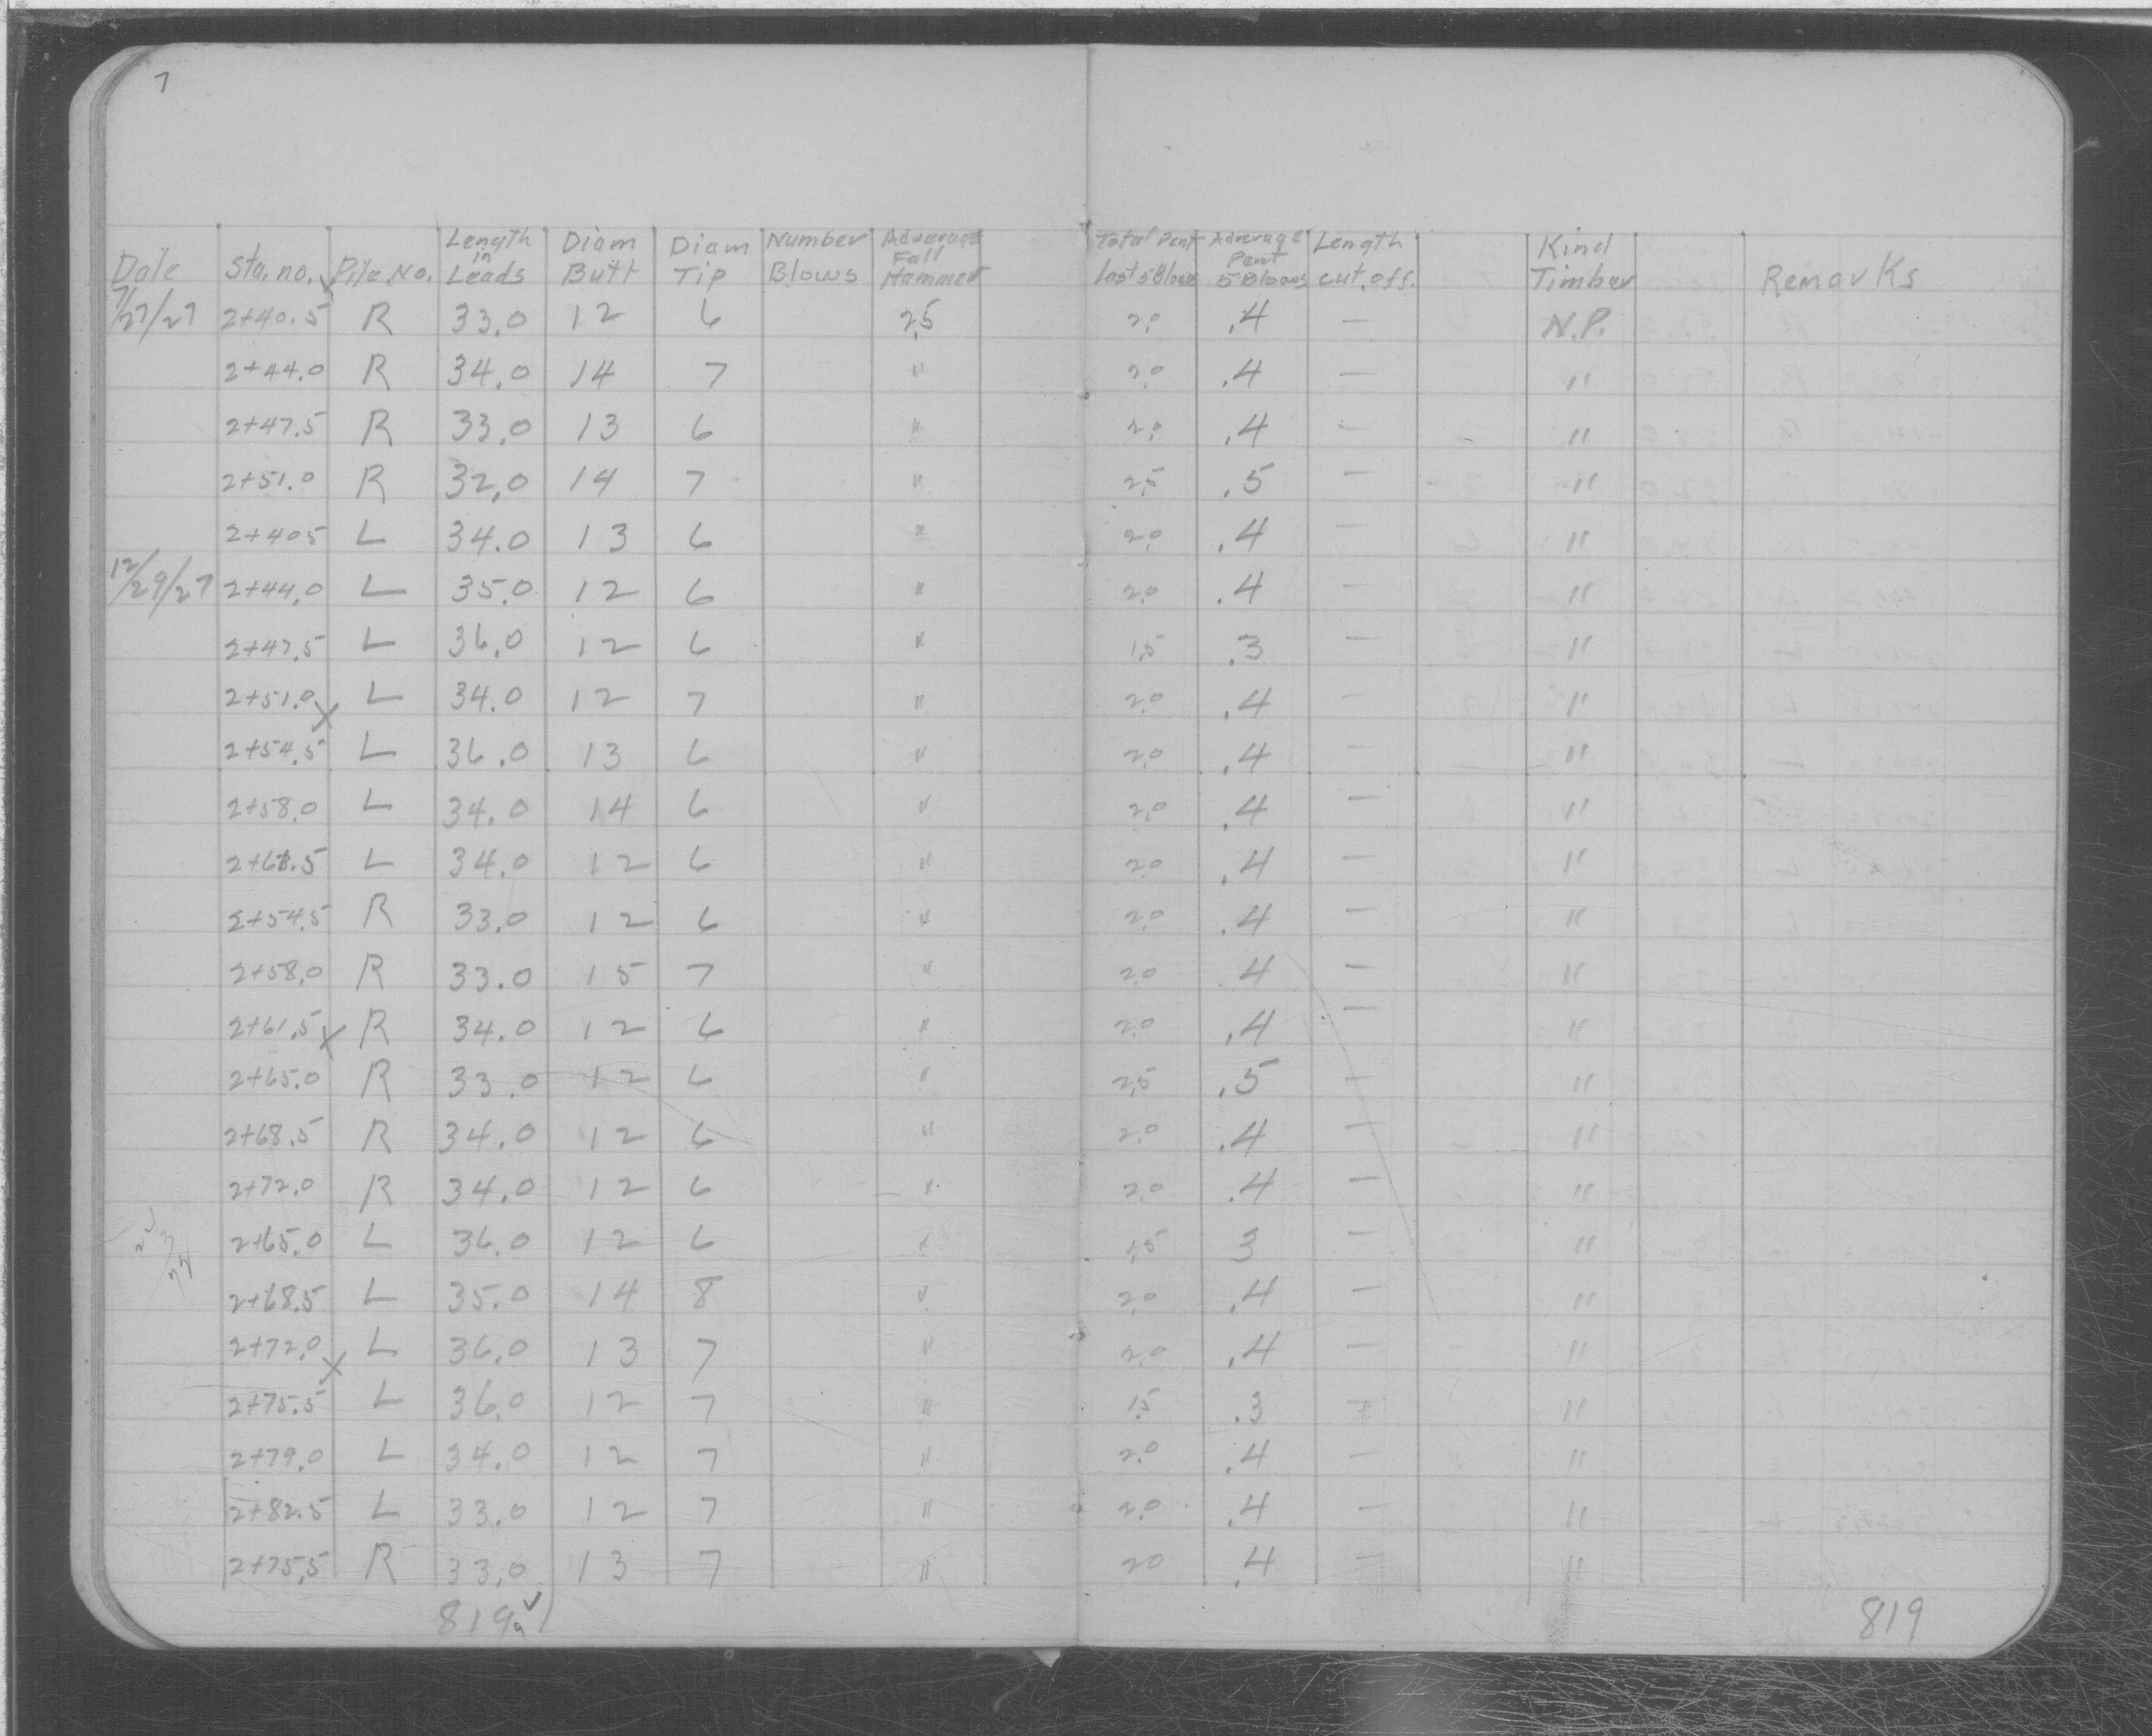 7
Date Sta. no. Pile. No. Length in Leads Diam Butt Diam Tip Number Blows Adverage Fall Hammer Total Pent Last 5 Blows Adverage Pent 5 Blows Length cut. off. Kind Timber Remarks
7/27/27 2+40.5 R 33.0 12 6 25 2.0 .4 — N.P.
2+44.0 R 34.0 14 7 " 2.0 .4 — "
2+47.5 R 33.0 13 6 " 2.0 .4 — "
2+51.0 R 32.0 14 7 " 2.5 .5 — "
2+405 L 34.0 13 6 " 2.0 .4 — "
12/29/27 2+44.0 L 35.0 12 6 " 2.0 .4 — "
2+47.5 L 36.0 12 6 " 1.5 .3 — "
2+51.0 x L 34.0 12 7 " 2.0 .4 — "
2+54.5 L 36.0 13 6 " 2.0 .4 — "
2+58.0 L 34.0 14 6 " 2.0 .4 — "
L 34.0 12 6 " 2.0 .4 — "
2+54.5 R 33.0 12 6 " 2.0 .4 — "
2+58.0 R 33.0 15 7 " 2.0 .4 — "
2+61.5 x R 34.0 12 6 " 2.0 .4 — "
2+65.0 R 33.0 12 6 " 2.5 .5 — "
2+68.5 R 34.0 12 6 " 2.0 .4 — "
2+72.0 R 34.0 12 6 " 2.0 .4 — "
2+65.0 L 36.0 12 6 " 1.5 3 — "
2+68.5 L 35.0 14 8 " 2.0 .4 — "
2+72.0 x L 36.0 13 7 " 2.0 .4 — "
2+75.5 L 36.0 12 7 " 1.5 .3 — "
2+79.0 L 34.0 12 7 " 2.0 .4 — "
2+82.5 L 33.0 12 7 " 2.0 .4 — "
2+75.5 R 33.0 13 7 " 20 .4 — "
819 819